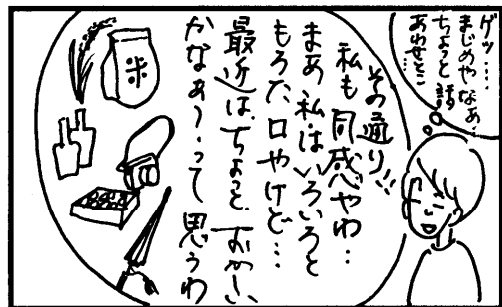 ゲッ…
まじめやなぁ…
ちょっと話
あわせとこ…
その通り!!
私も同感やわ…
まあ私はいろいろと
もろた口やけど…
最近はちょっとおかしい
かなぁ〜って思うわ
米